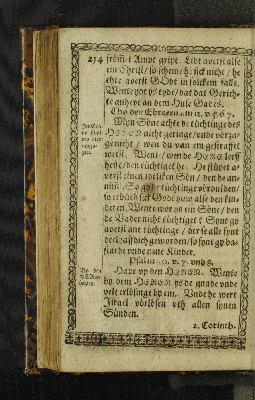 214 frömt Ambt gript. Lidt averst alse
ein Christ / so scheme he sick nicht / he
ehre averst GOdt in solckem falle.
Wente ydt ys tydt / dat dat Gerich-
te anheve an dem Huse Gades.
Tho den Ebreern am 12. v. 5 6 7.
Myn Söne achte de tüchtinge des
HEREN nicht geringe / unde vörza-
ge nicht / wen du van em gestraffet
werst. Wente / wen de HERE leeff
hefft / den tüchtiget he. He stüpet a-
verst einen
So gy de tüchtinge vördulden /
so erbüth sick Godt yuw alse den kin-
deren. Wente wor ys ein Söne / den
de Vader nicht tüchtiget? Synt gy
averst ane tüchtinge / der se alle synt
deelhafftich geworden / so synt gy ba-
starde unde nene Kinder.
Psalm 130. v. 7. und 8.
Hape up den HEREN. Wente
by dem HEREN ys de gnade unde
vele erlösinge by em. Unde he wert
Israel vörlösen uth allen synen
Sünden.
2. Corinth.